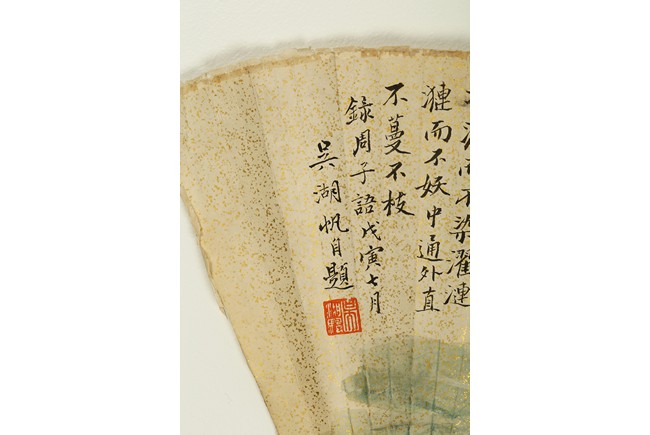 泥而不染濯漣
漣而不妖中通外直
不蔓不枝
錄周子語戊寅七月
吳湖帆自題